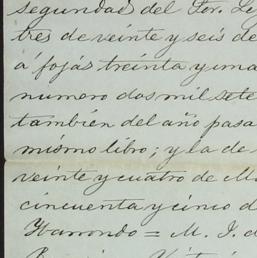 segundas del Sor.
tres de veinte y seis de
á fojas treinta y una
numero dos mil sete
también del año pasa
mismo libro; y la de
veinte y cuatro de M
cincuenta y cinco d
Ibarrondo = M. I. d